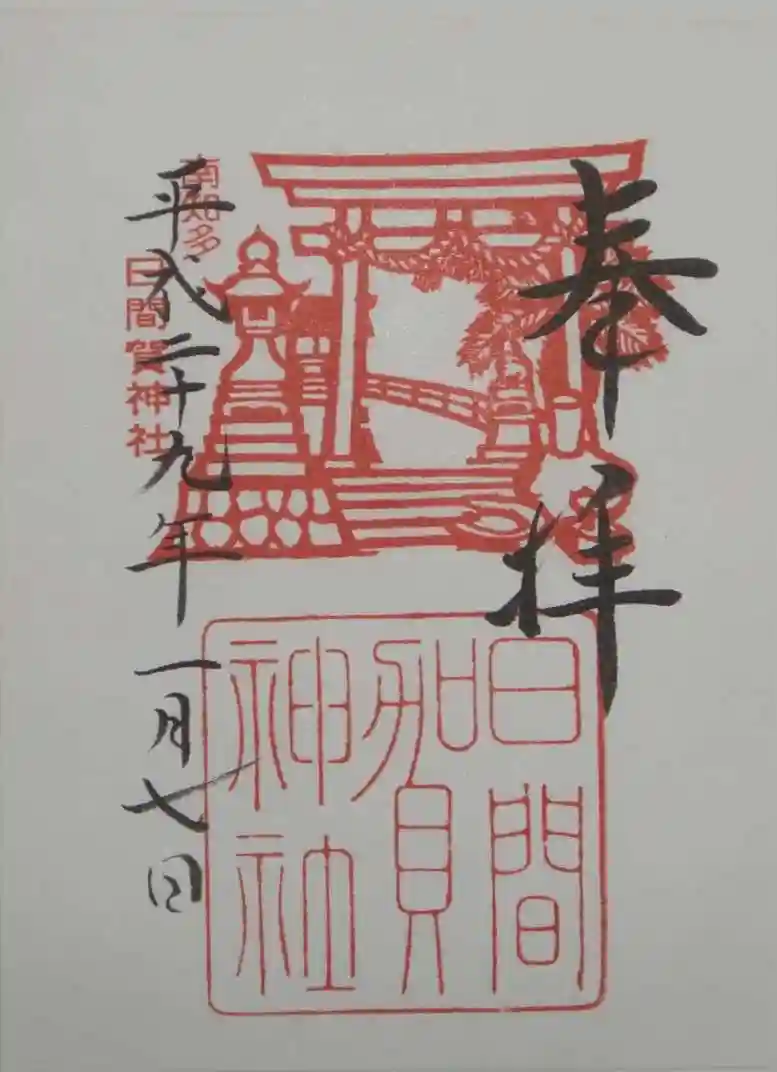 奉拝
日間
賀
神社
南知多
日間賀神社
平成二十九年一月七日